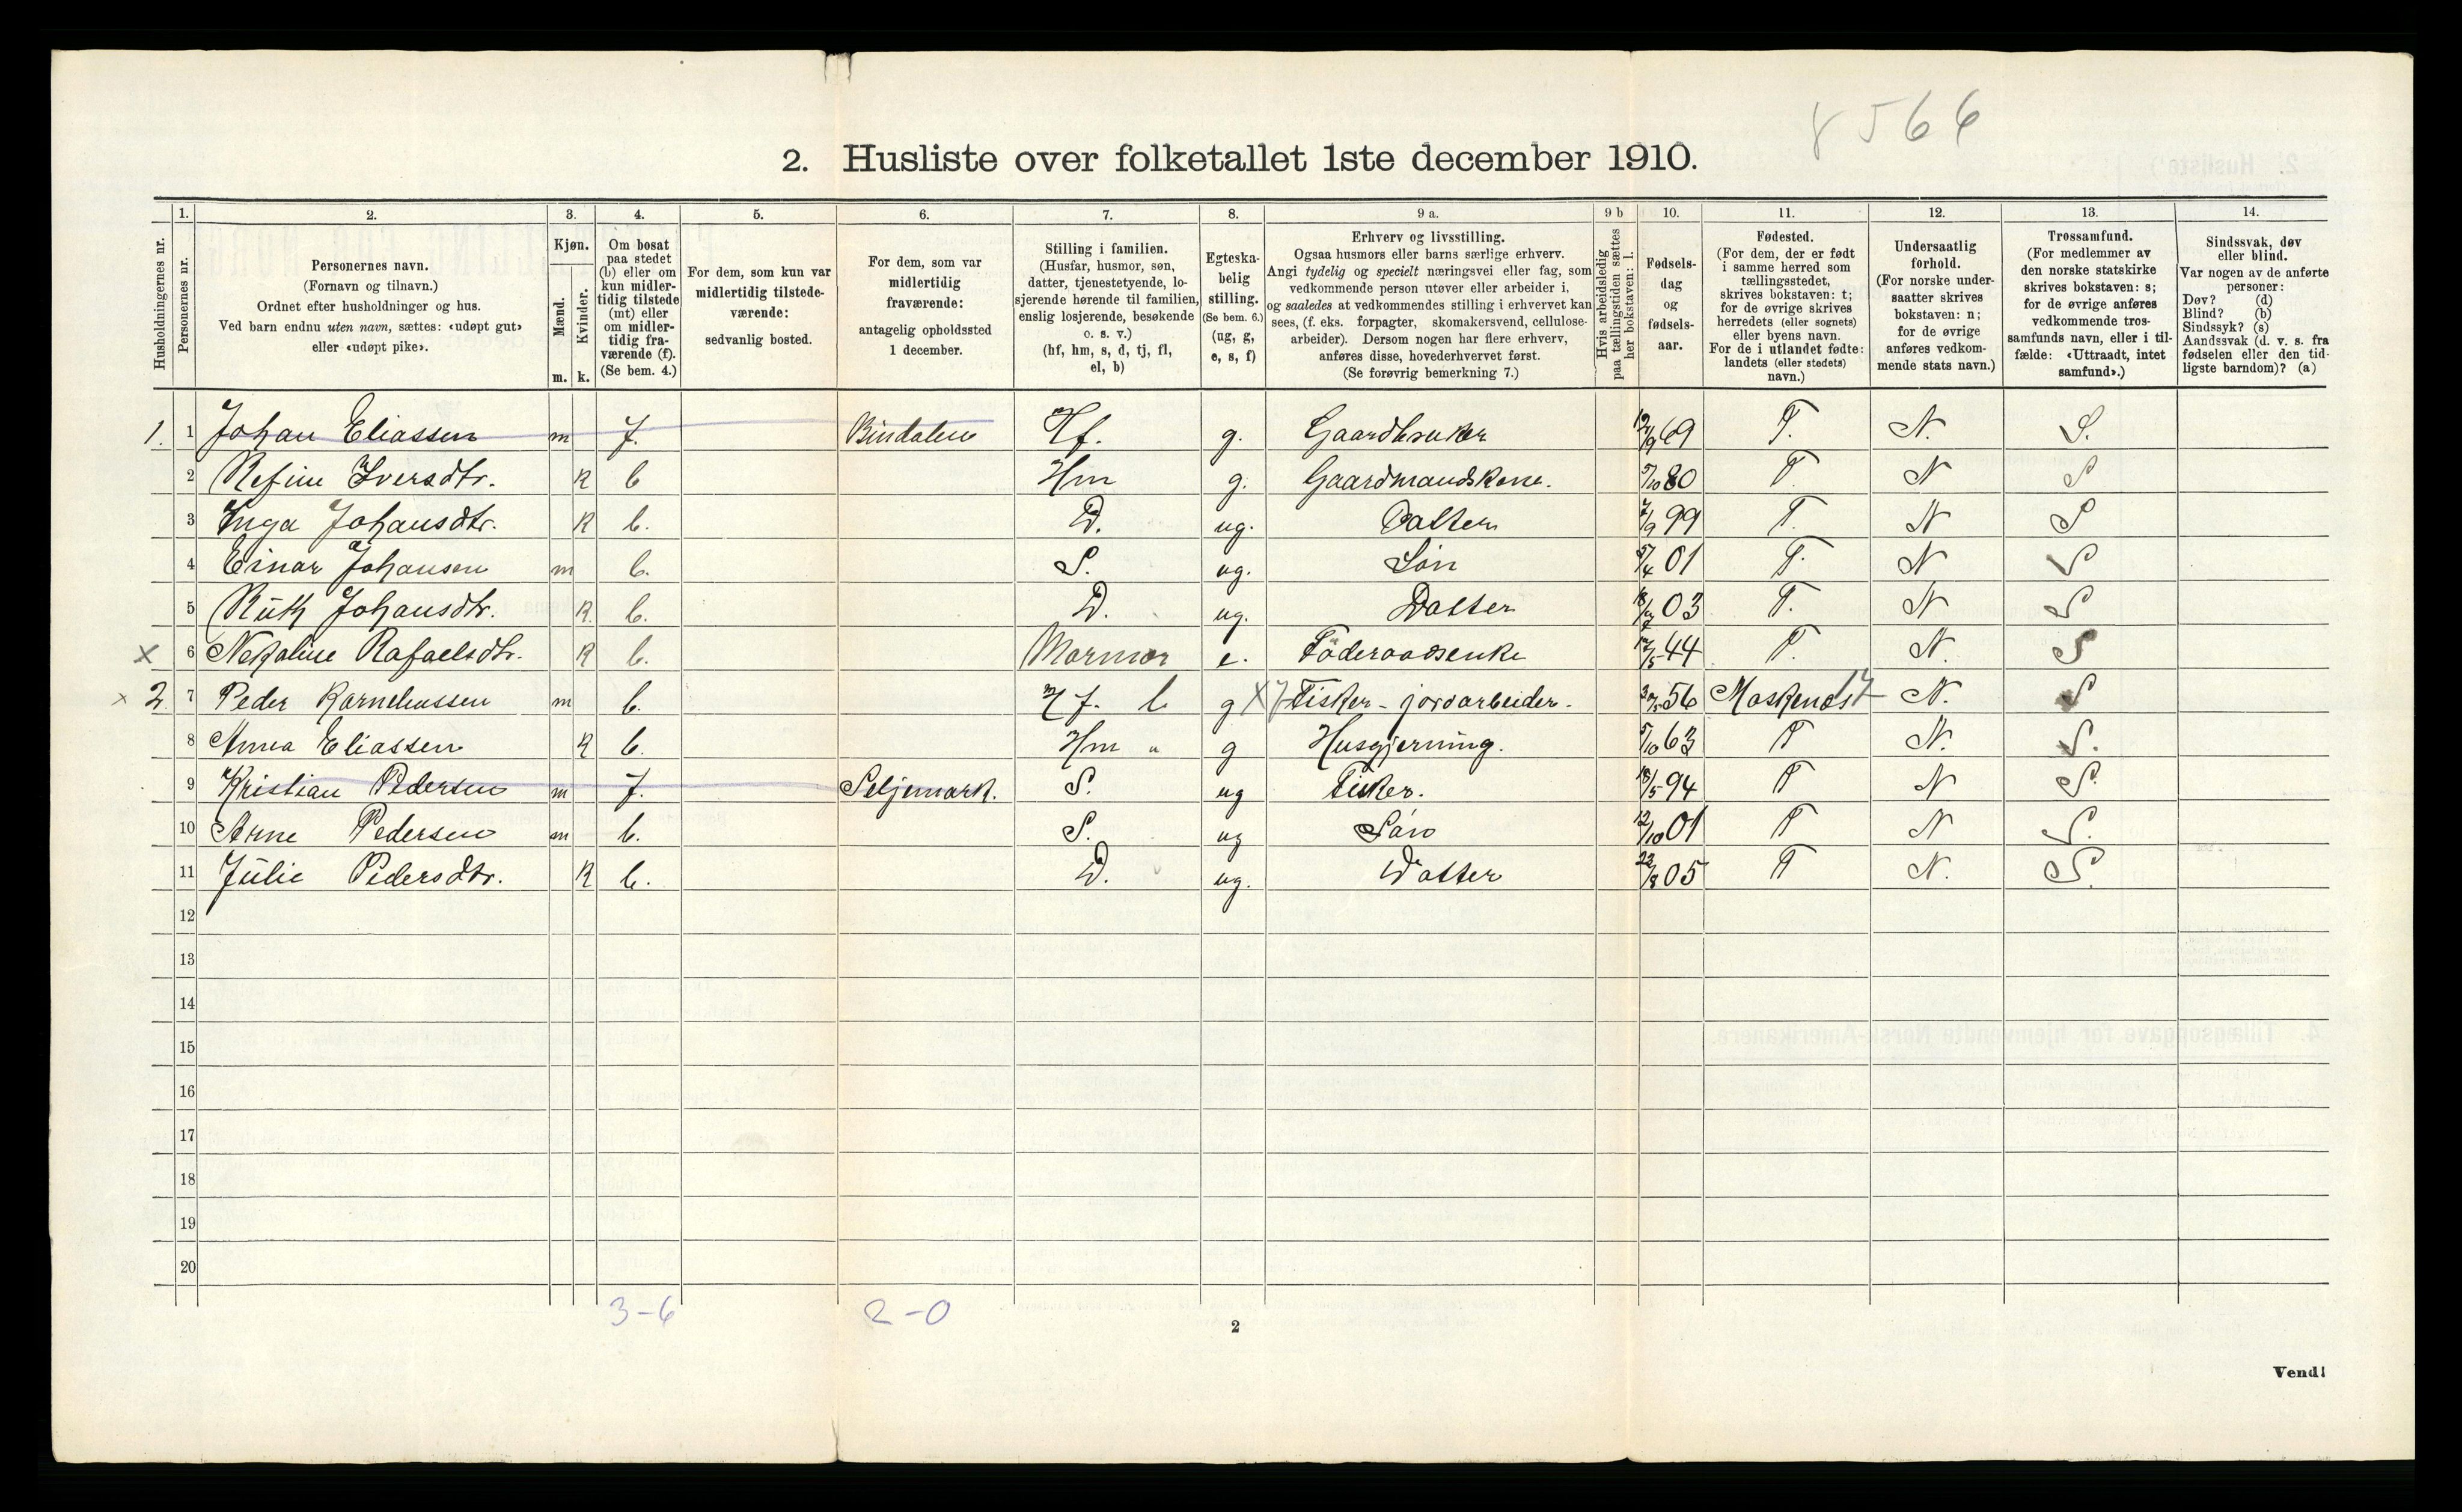 8566
2. Husliste over folketallet 1ste december 1910.
Husholdningernes nr.
1.
Personernes nr.
2.
Personernes navn.
(Fornavn og tilnavn.)
Ordnet efter husholdninger og hus.
Ved barn endnu uten navn, sættes: «udøpt gut»
eller «udøpt pike».
3.
Kjøn.
Mænd.
Kvinder.
m. k.
4.
Om bosat
paa stedet
(b) eller om
kun midler-
tidig tilstede
(mt) eller
om midler-
tidig fra-
værende (f).
(Se bem. 4.)
5.
For dem, som kun var
midlertidig tilstede-
værende:
sedvanlig bosted.
6.
For dem, som var
midlertidig
fraværende:
antagelig opholdssted
1 december.
7.
Stilling i familien.
(Husfar, husmor, søn,
datter, tjenestetyende, lo-
sjerende hørende til familien,
enslig losjerende, besøkende
o. s. v.)
(hf, hm, s, d, tj, fl,
el, b)
8.
Egteska-
belig
stilling.
(Se bem. 6.)
(ug, g,
e, s, f)
9 a.
Erhverv og livsstilling.
Ogsaa husmors eller barns særlige erhverv.
Angi tydelig og specielt næringsvei eller fag, som
vedkommende person utøver eller arbeider i,
og saaledes at vedkommendes stilling i erhvervet kan
sees, (f. eks. forpagter, skomakersvend, cellulose-
arbeider). Dersom nogen har flere erhverv,
anføres disse, hovederhvervet først.
(Se forøvrig bemerkning 7.)
9 b
Hvis arbeidsledig
paa tællingstiden sættes
her bokstaven: l.
10.
Fødsels-
dag
og
fødsels-
aar.
11.
Fødested.
(For dem, der er født
i samme herred som
tællingsstedet,
skrives bokstaven: t;
for de øvrige skrives
herredets (eller sognets)
eller byens navn.
For de i utlandet fødte:
landets (eller stedets)
navn.)
12.
Undersaatlig
forhold.
(For norske under-
saatter skrives
bokstaven: n;
for de øvrige
anføres vedkom-
mende stats navn.)
13.
Trossamfund.
(For medlemmer av
den norske statskirke
skrives bokstaven: s;
for de øvrige anføres
vedkommende tros-
samfunds navn, eller i til-
fælde: «Uttraadt, intet
samfund».)
14.
Sindssvak, døv
eller blind.
Var nogen av de anførte
personer:
Døv? (d)
Blind? (b)
Sindssyk? (s)
Aandssvak (d. v. s. fra
fødselen eller den tid-
ligste barndom)? (a)
1. 1 Johan Eliassen m f. Bindalen Hf. g. Gaardbruker 12/9 69 T. N. S.
2 Refine Iversdtr. k b Hm g. Gaardmandskone. 5/10 80 T. N S
3 Inga Johansdtr. k b. D. ug. Datter 7/9 99 T. N S
4 Einar Johansen m b. S. ug. Søn 01 T. N S
5 Ruth Johansdtr. k. b. D. ug. Datter 03 T. N S
x 6 Rafaelsdtr. k b. Mormor e. Föderaadsenke 44 T. N. S
x 2 7 Peder Korneliussen m b. Hf. b g X 7 Fisker - jordarbeider. 56 Moskenæs 17 N. S
8 Anna Eliassen k b. Hm " g Husgjerning. 5/10 63 T N. S.
9 Kristian Pedersen m f. Seljemark. S. ug Fisker. 18/5 94 T N S.
10 Arne Pedersen m b. S. ug Søn 12/10 01 T N S.
11 Julie Pedersdtr. k b. D. ug. Datter 22/8 05 T N. S.
12
13
14
15
16
17
18
19
20
3-6 2-0
2
Vend!